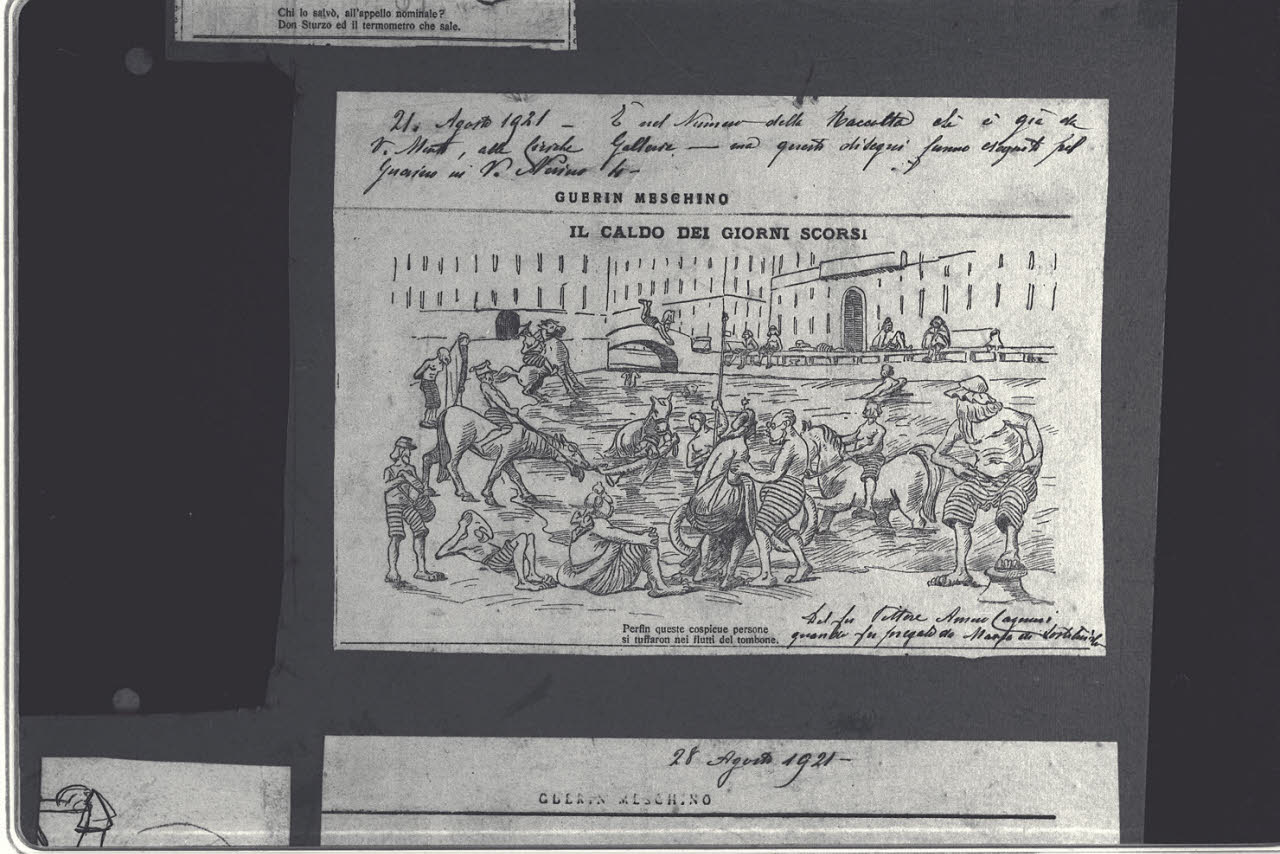 Chi lo salvò, all'appello nominale?
Don Sturzo ed il termometro che sale.
21. Agosto 1921 — È nel Numero della Raccolta che è già da
V. , alle Gallerie — ma questi disegni fanno eseguiti pel
Guerino in V. 
GUERIN MESCHINO
IL CALDO DEI GIORNI SCORSI
Perfin queste cospicue persone
si tuffaron nei flutti del tombone.
Del fu Pittore
quando fu pregato da
28 Agosto 1921 —
GUERIN MESCHINO